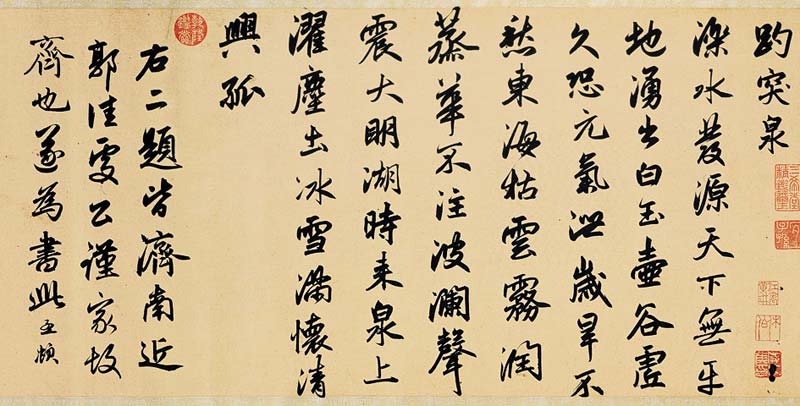 趵突泉
濼水發源天下無平
地湧出白玉壺谷虛
久恐元氣泄歲旱不
愁東海枯雲霧潤
蒸華不注波瀾聲
震大明湖時來泉上
濯塵土冰雪滿懷清
興孤
右二題皆濟南近
郭佳處公謹家故
齊也遂為書此孟頫
三希堂精鑑璽
宜子孫
乾隆鑑賞